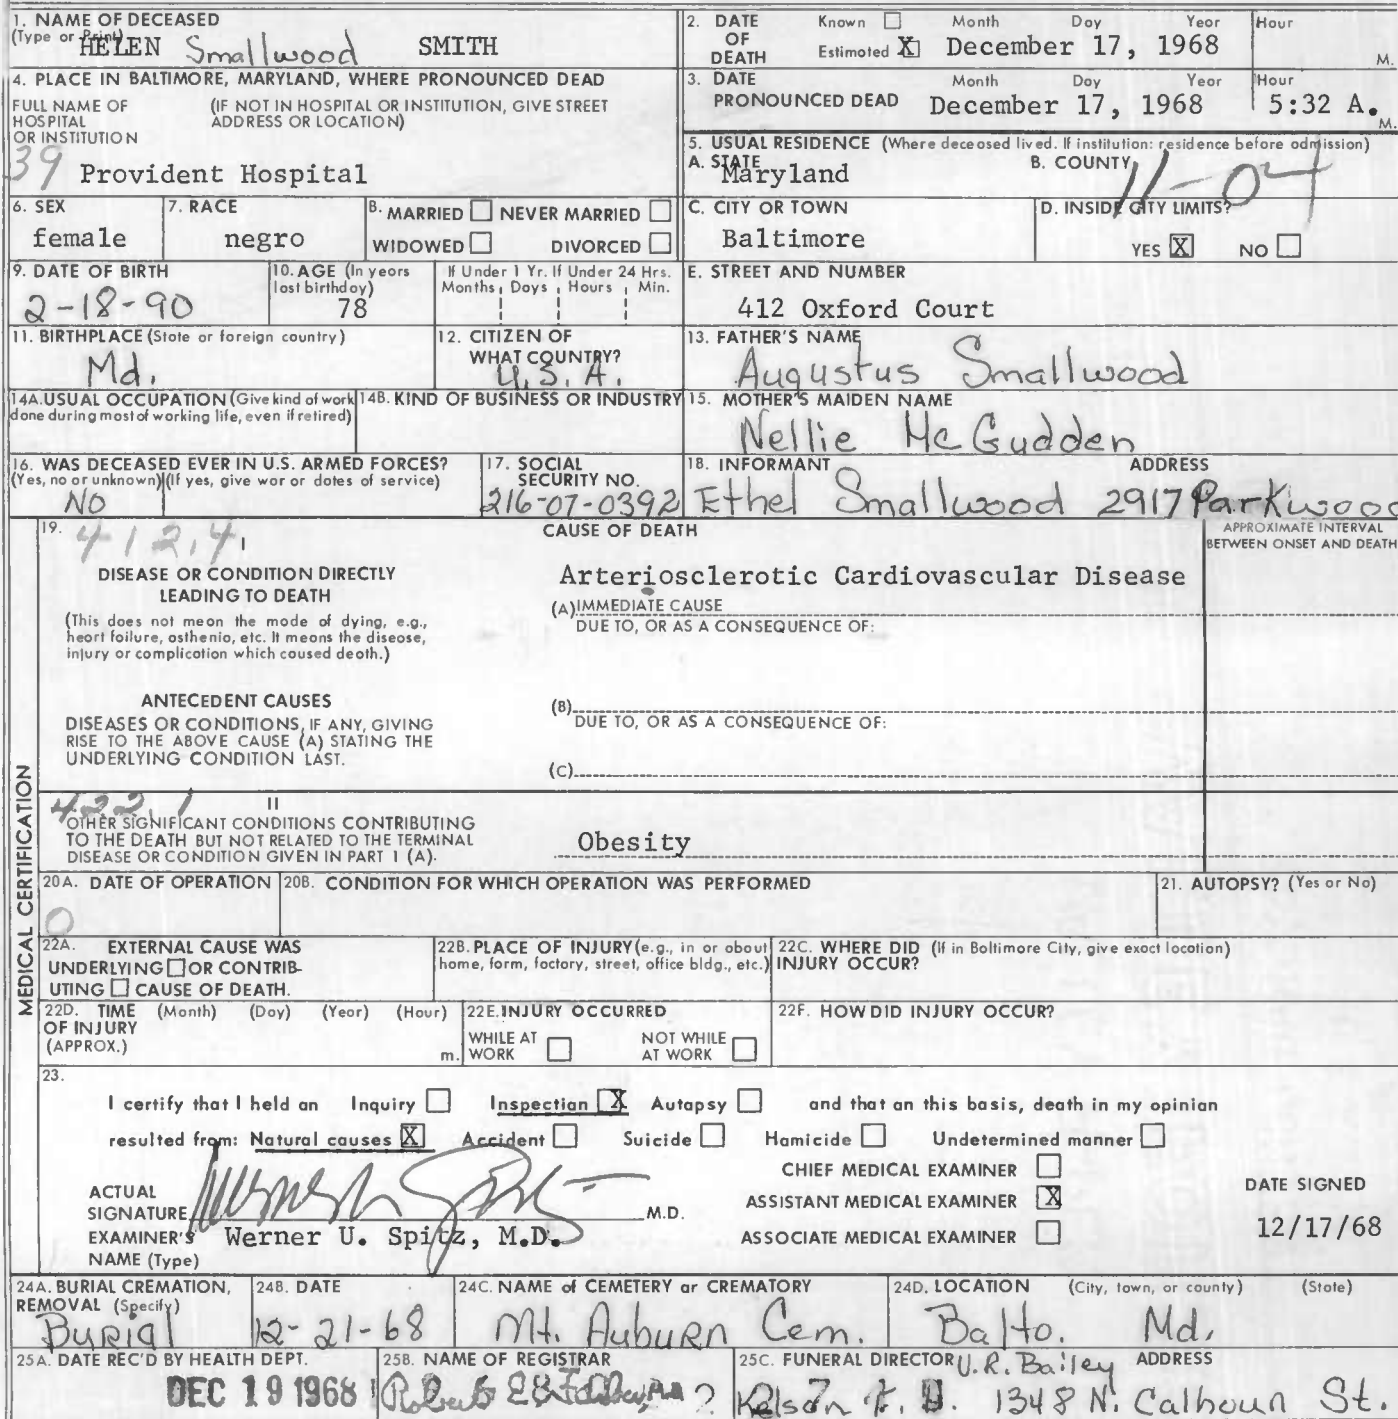 1. NAME OF DECEASED
(Type or Print)
HELEN Smallwood SMITH
2. DATE OF DEATH Known Estimated X Month Day Year Hour
December 17, 1968 M.
4. PLACE IN BALTIMORE, MARYLAND, WHERE PRONOUNCED DEAD
FULL NAME OF HOSPITAL OR INSTITUTION
(IF NOT IN HOSPITAL OR INSTITUTION, GIVE STREET ADDRESS OR LOCATION)
39 Provident Hospital
3. DATE PRONOUNCED DEAD Month Day Year Hour
December 17, 1968 5:32 A. M.
5. USUAL RESIDENCE (Where deceased lived. If institution: residence before admission)
A. STATE Maryland
B. COUNTY 11-04
6. SEX female
7. RACE negro
8. MARRIED NEVER MARRIED
WIDOWED DIVORCED
C. CITY OR TOWN Baltimore
D. INSIDE CITY LIMITS?
YES X NO
9. DATE OF BIRTH 2-18-90
10. AGE (In years last birthday) 78
If Under 1 Yr. If Under 24 Hrs.
Months Days Hours Min.
E. STREET AND NUMBER
412 Oxford Court
11. BIRTHPLACE (State or foreign country)
Md.
12. CITIZEN OF WHAT COUNTRY?
U.S.A.
13. FATHER'S NAME
Augustus Smallwood
14A. USUAL OCCUPATION (Give kind of work done during most of working life, even if retired)
14B. KIND OF BUSINESS OR INDUSTRY
15. MOTHER'S MAIDEN NAME
Nellie McGudden
16. WAS DECEASED EVER IN U.S. ARMED FORCES?
(Yes, no or unknown) (If yes, give war or dates of service)
NO
17. SOCIAL SECURITY NO.
216-07-0392
18. INFORMANT ADDRESS
Ethel Smallwood 2917 Parkwood
MEDICAL CERTIFICATION
19. 412.4 I
CAUSE OF DEATH
APPROXIMATE INTERVAL BETWEEN ONSET AND DEATH
DISEASE OR CONDITION DIRECTLY LEADING TO DEATH
(This does not mean the mode of dying, e.g., heart failure, asthenia, etc. It means the disease, injury or complication which caused death.)
Arteriosclerotic Cardiovascular Disease
(A) IMMEDIATE CAUSE
DUE TO, OR AS A CONSEQUENCE OF:
ANTECEDENT CAUSES
DISEASES OR CONDITIONS, IF ANY, GIVING RISE TO THE ABOVE CAUSE (A) STATING THE UNDERLYING CONDITION LAST.
(B)
DUE TO, OR AS A CONSEQUENCE OF:
(C)
422.1 II
OTHER SIGNIFICANT CONDITIONS CONTRIBUTING TO THE DEATH BUT NOT RELATED TO THE TERMINAL DISEASE OR CONDITION GIVEN IN PART I (A).
Obesity
20A. DATE OF OPERATION
0
20B. CONDITION FOR WHICH OPERATION WAS PERFORMED
21. AUTOPSY? (Yes or No)
22A. EXTERNAL CAUSE WAS UNDERLYING OR CONTRIBUTING CAUSE OF DEATH.
22B. PLACE OF INJURY (e.g., in or about home, farm, factory, street, office bldg., etc.)
22C. WHERE DID INJURY OCCUR? (If in Baltimore City, give exact location)
22D. TIME OF INJURY (APPROX.) (Month) (Day) (Year) (Hour) m.
22E. INJURY OCCURRED
WHILE AT WORK NOT WHILE AT WORK
22F. HOW DID INJURY OCCUR?
23.
I certify that I held an Inquiry Inspection X Autopsy and that on this basis, death in my opinion
resulted from: Natural causes X Accident Suicide Homicide Undetermined manner
CHIEF MEDICAL EXAMINER
ACTUAL SIGNATURE Werner Spitz M.D.
ASSISTANT MEDICAL EXAMINER X
DATE SIGNED
EXAMINER'S NAME (Type) Werner U. Spitz, M.D.
ASSOCIATE MEDICAL EXAMINER
12/17/68
24A. BURIAL CREMATION, REMOVAL (Specify)
Burial
24B. DATE
12-21-68
24C. NAME of CEMETERY or CREMATORY
Mt. Auburn Cem.
24D. LOCATION (City, town, or county) (State)
Balto. Md.
25A. DATE REC'D BY HEALTH DEPT.
DEC 19 1968
25B. NAME OF REGISTRAR
Robert E.
25C. FUNERAL DIRECTOR ADDRESS
U.R. Bailey
Kelson F. H. 1348 N. Calhoun St.